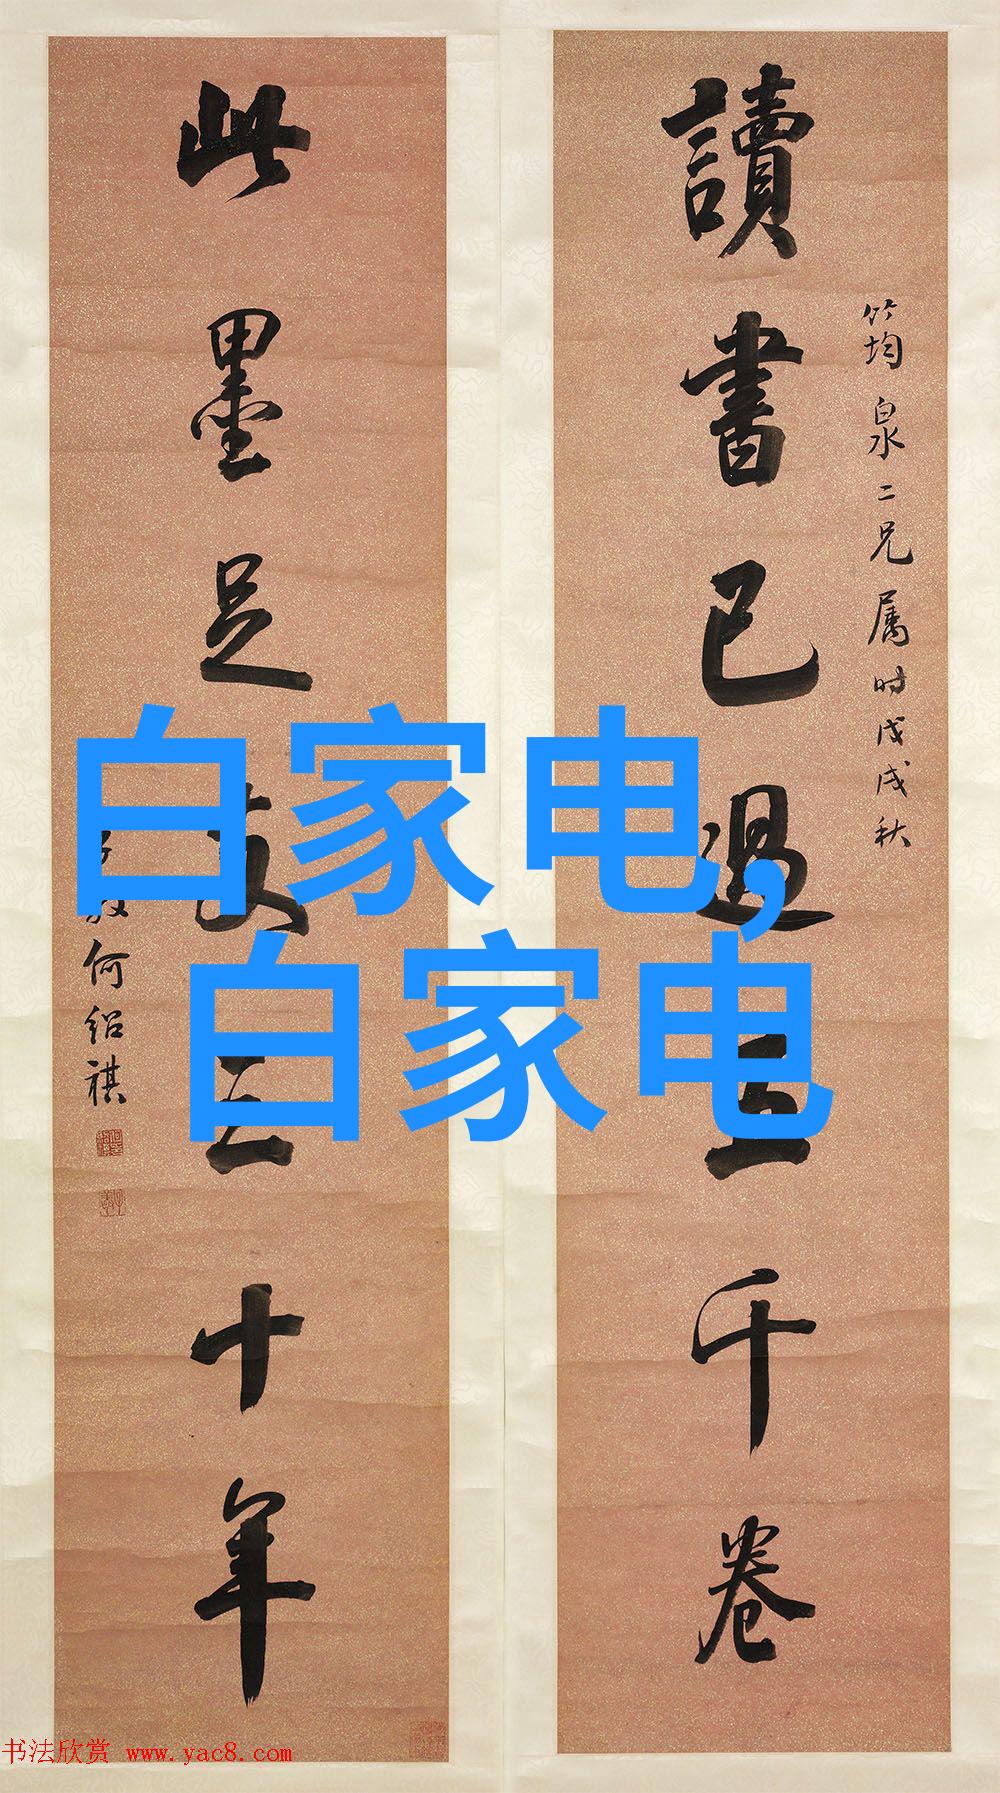 讀書已過五千卷
筠泉二兄属时戊戌秋
此墨足支三十年
子敬何紹祺
白家电,
白家电
书法欣赏 www.yac8.com